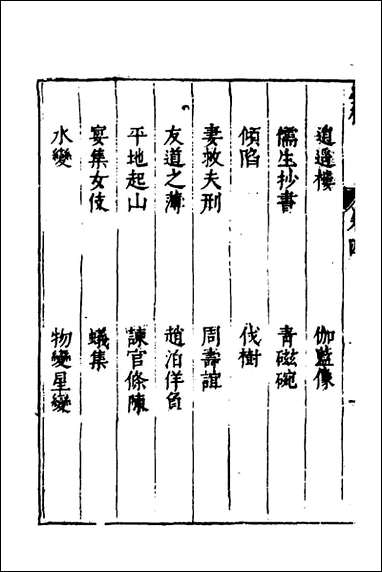 逍遥樓　伽藍像
儒生抄書　青磁碗
傾陷　伐樹
妻救夫刑　周壽誼
友道之薄　趙泊佯負
平地起山　諫官條陳
宴集女伎　蟻集
水變　物變星變